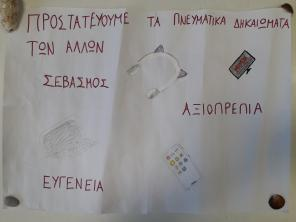 ΠΡΟΣΤΑΤΕΥΟΥΜΕ ΤΑ ΠΝΕΥΜΑΤΙΚΑ ΔΙΚΑΙΩΜΑΤΑ
ΤΩΝ ΑΛΛΩΝ
ΣΕΒΑΣΜΟΣ
ΑΞΙΟΠΡΕΠΙΑ
ΕΥΓΕΝΕΙΑ